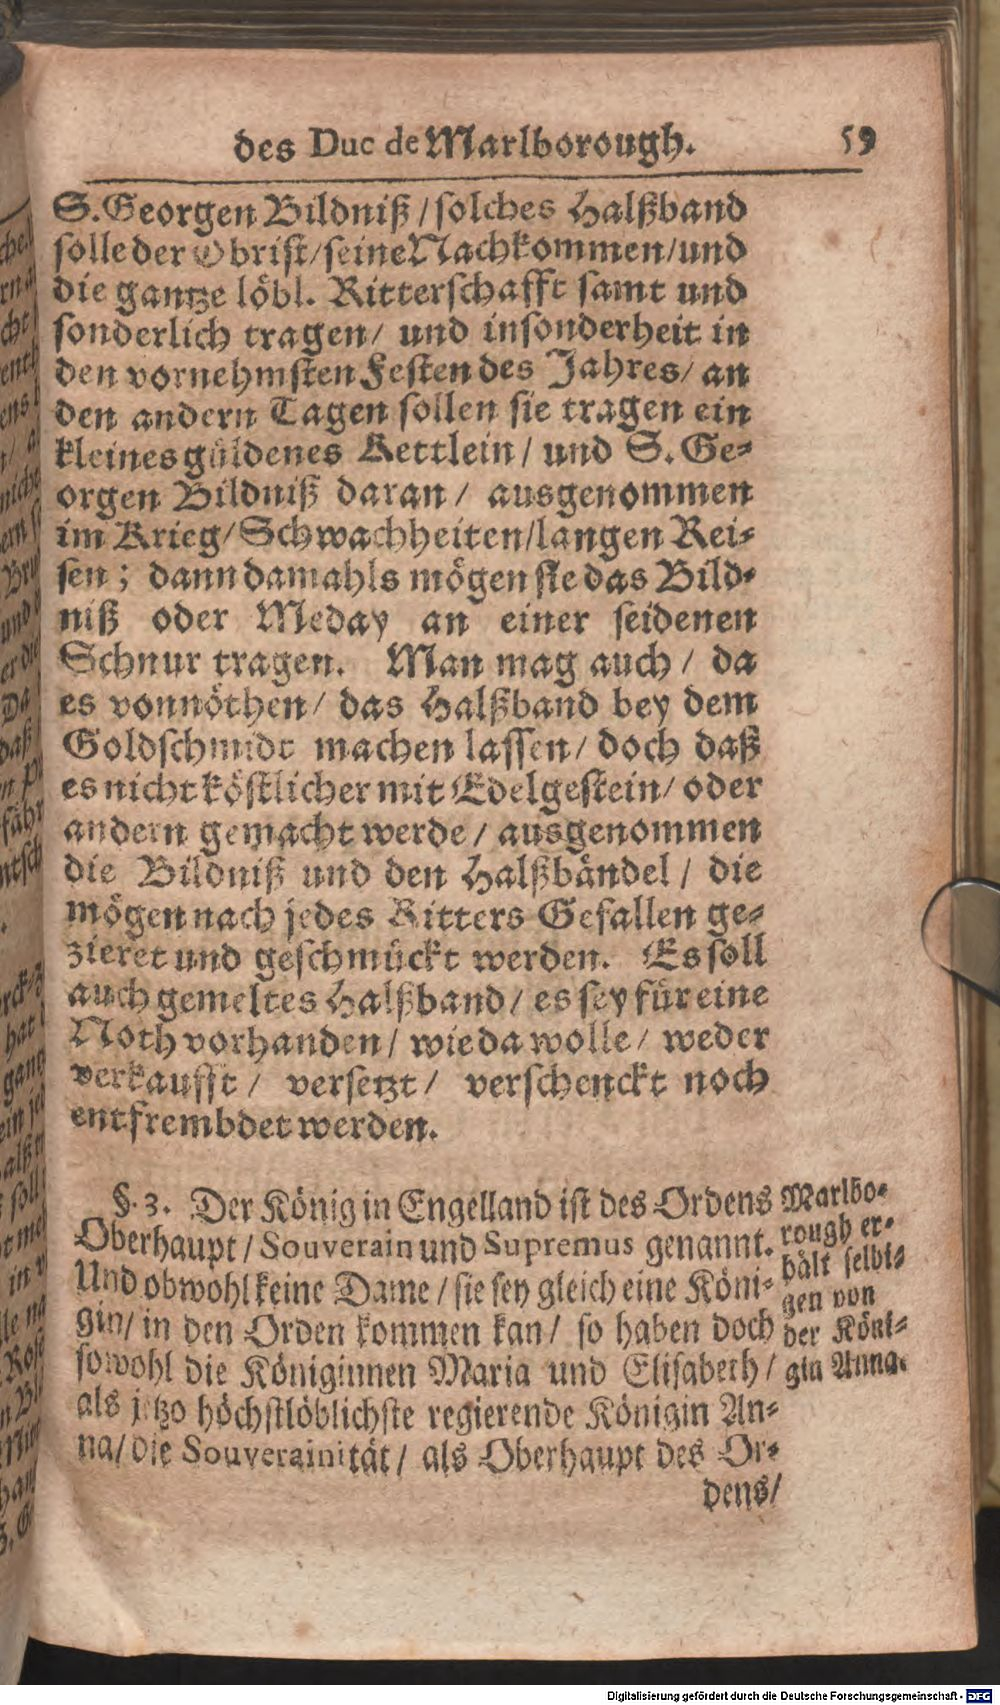 des Duc de Marlborough. 59
S. Georgen Bildniß / solches Halßband
solle der Obrist / seine Nachkommen / und
die gantze löbl. Ritterschafft samt und
sonderlich tragen / und insonderheit in
den vornehmsten Festen des Jahres / an
den andern Tagen sollen sie tragen ein
kleines güldenes Kettlein / und S. Ge-
orgen Bildniß daran / ausgenommen
im Krieg / Schwachheiten / langen Rei-
sen ; dann damahls mögen sie das Bild-
niß oder Meday an einer seidenen
Schnur tragen. Man mag auch / da
es vonnöthen / das Halßband bey dem
Goldschmidt machen lassen / doch daß
es nicht köstlicher mit Edelgestein / oder
andern gemacht werde / ausgenommen
die Bildniß und den Halßbändel / die
mögen nach jedes Ritters Gefallen ge-
zieret und geschmückt werden. Es soll
auch gemeltes Halßband / es sey für eine
Noth vorhanden / wie da wolle / weder
verkaufft / versetzt / verschenckt noch
entfrembdet werden.
§. 3. Der König in Engelland ist des Ordens
Oberhaupt / Souverain und Supremus genannt.
Und obwohl keine Dame / sie sey gleich eine Köni-
gin / in den Orden kommen kan / so haben doch
sowohl die Königinnen Maria und Elisabeth /
als jetzo höchstlöblichste regierende Königin An-
na / die Souverainität / als Oberhaupt des Or-
dens /
Marlbo-
rough er-
hält selbi-
gen von
der Köni-
gin Anna.
Digitalisierung gefördert durch die Deutsche Forschungsgemeinschaft - DFG